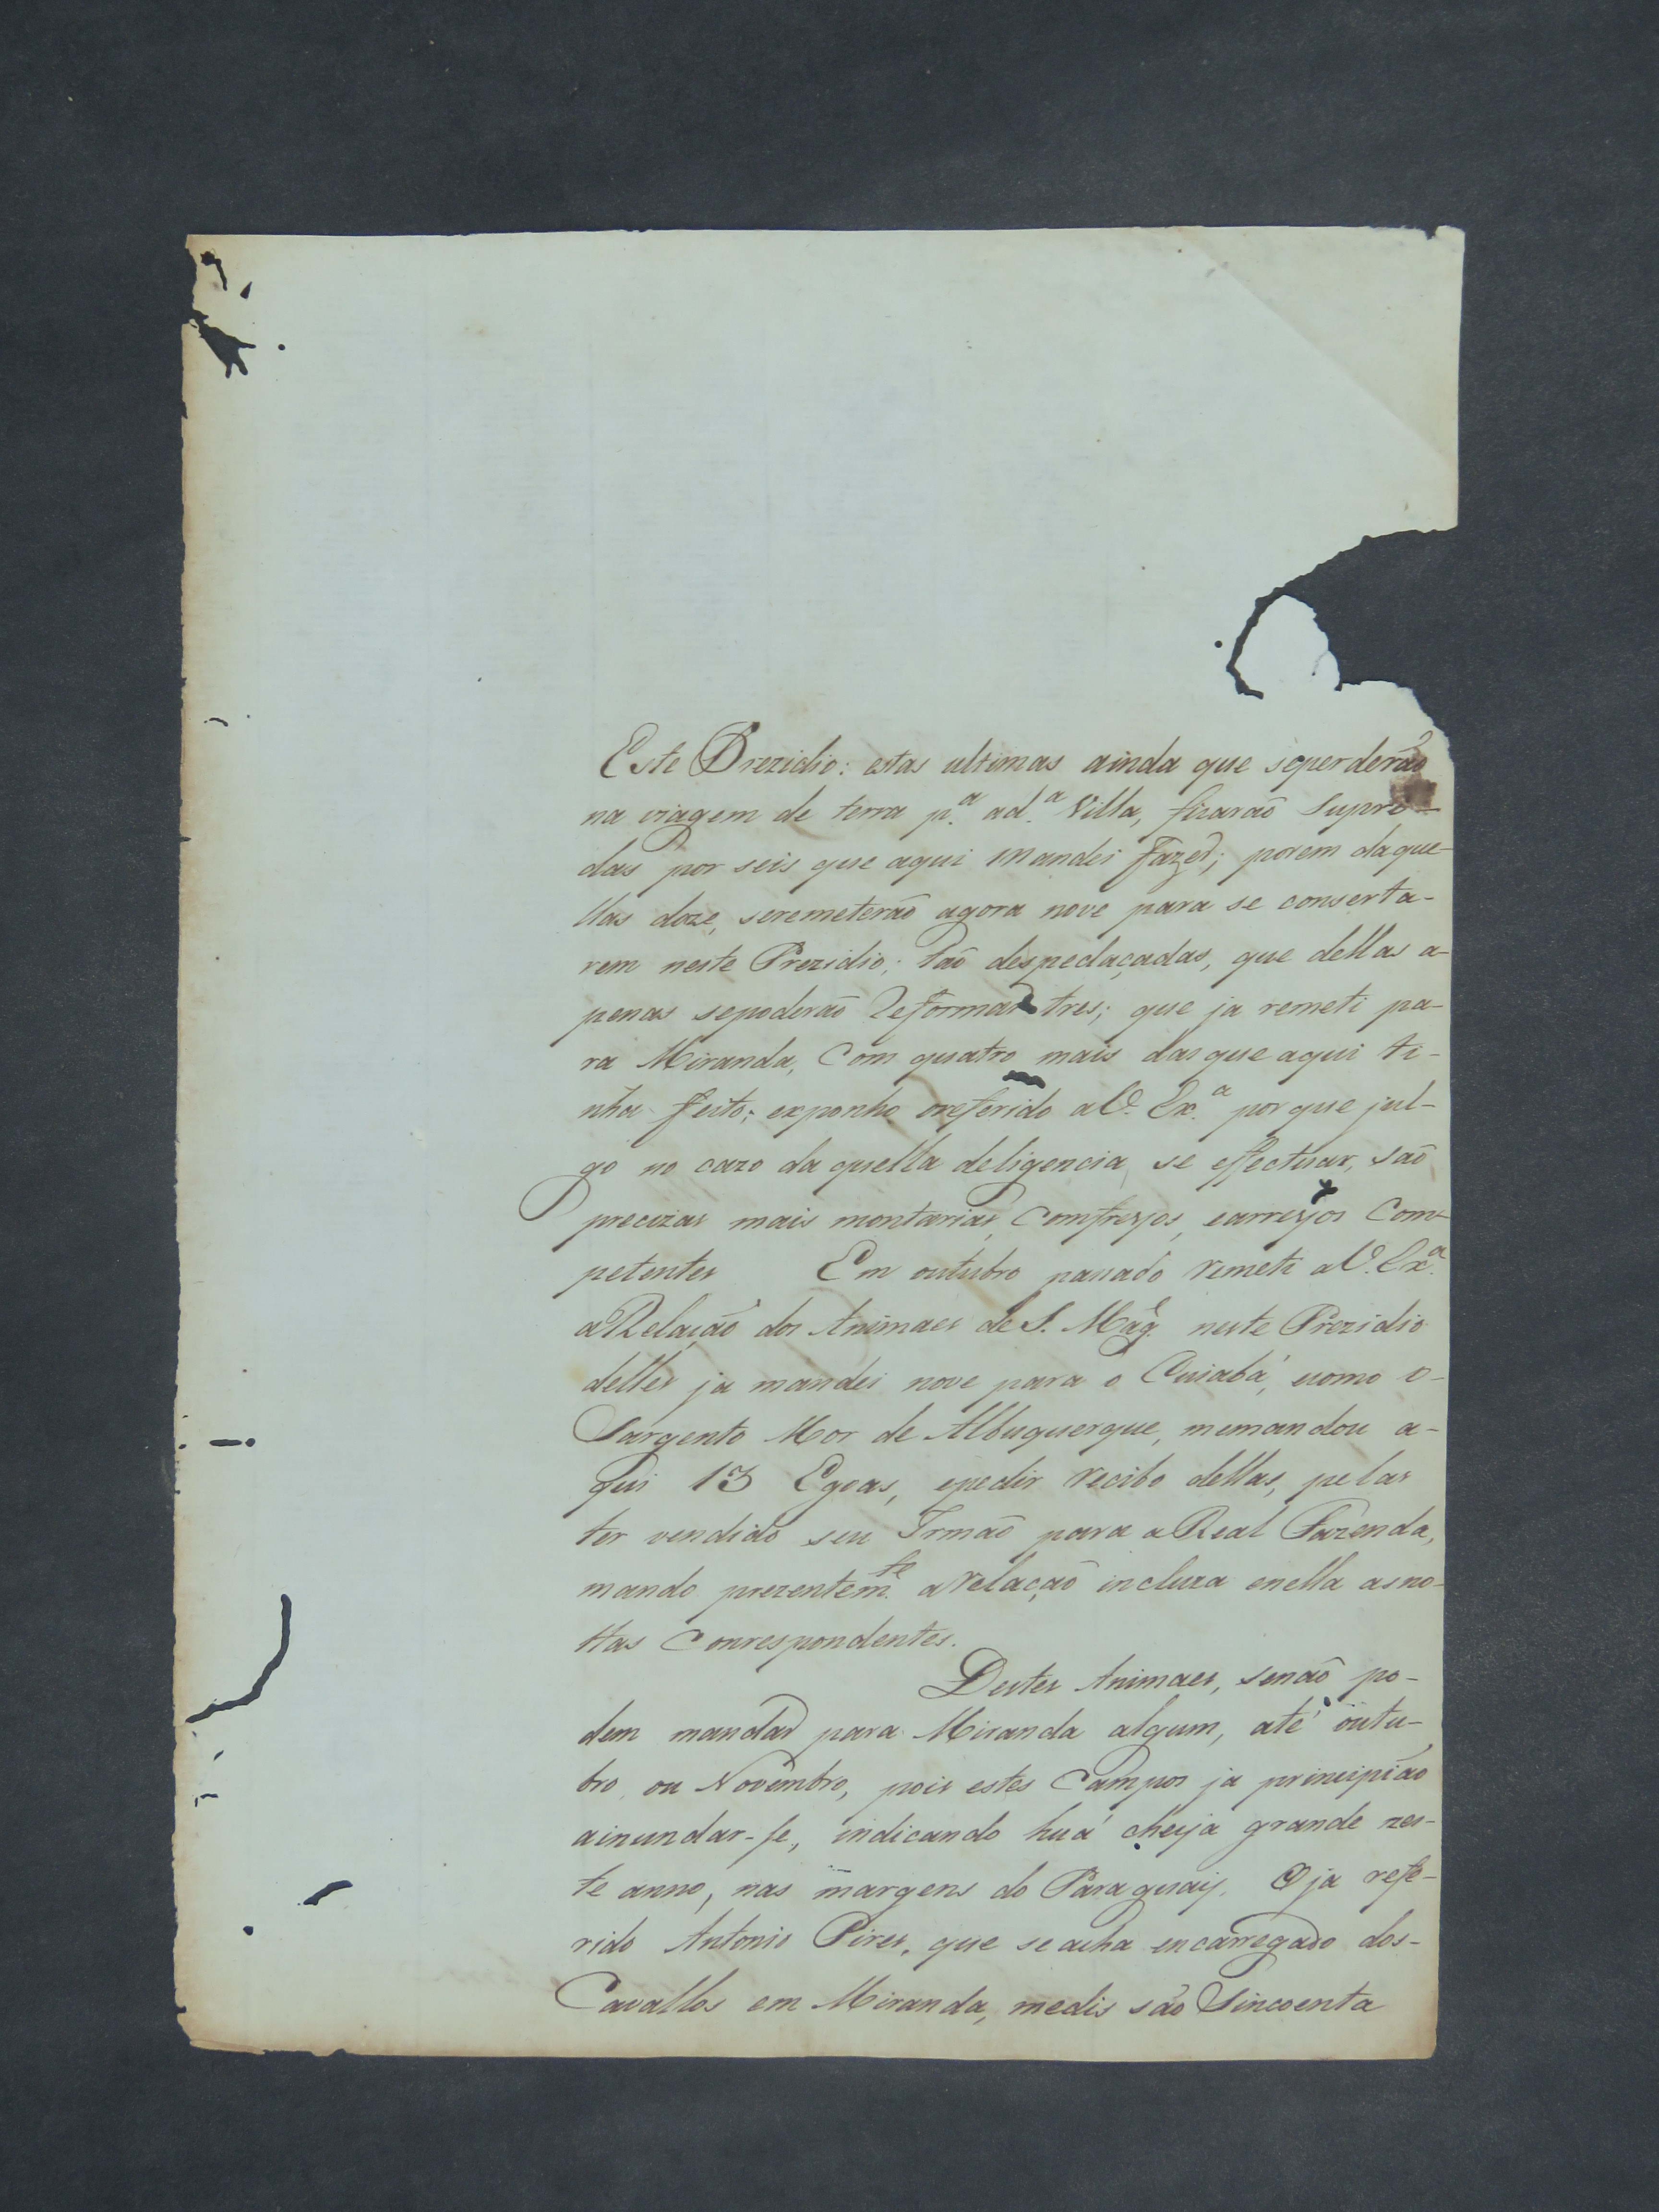 Este Prezidio: estas ultimas ainda que seperderão
na viagem de terra p.ª a d.ª Villa, ficarão Supre-
das por seis que aqui mandei fazer; porem daque-
llas doze, seremeterão agora nove para se conserta-
rem neste Prezidio; tão despedaçadas, que dellas a-
penas sepoderão Reformar tres; que ja remeti pa-
ra Miranda, Com quatro mais das que aqui ti-
nha feito; exponho oreferido a V. Ex.ª por que jul-
go no cazo da quella deligencia se effectuar, são
precizas mais montarias, Comfreyos, earreyos Com-
petentes Em outubro passado remeti a V. Ex.ª
a Relação dos Animaes de S. Mag.e neste Prezidio
delles ja mandei nove para o Cuiabá, ecomo o-
Sargento Mor de Albuquerque, memandou a-
qui 13 Egoas, epedir recibo dellas, pelas
ter vendido seu Irmão para a Real Fazenda,
mando prezentem.te a relação incluza enella asno-
ttas Correspondentes.
Destes Animaes, senão po-
dem mandar para Miranda algum, até outu-
bro, ou Novembro, pois estes Campos ja principião
ainundar-se, indicando huá cheya grande nes-
te anno, nas margens do Paraguay. O ja refe-
rido Antonio Pires, que se acha encarregado dos-
Cavallos em Miranda, medis são Sincoenta